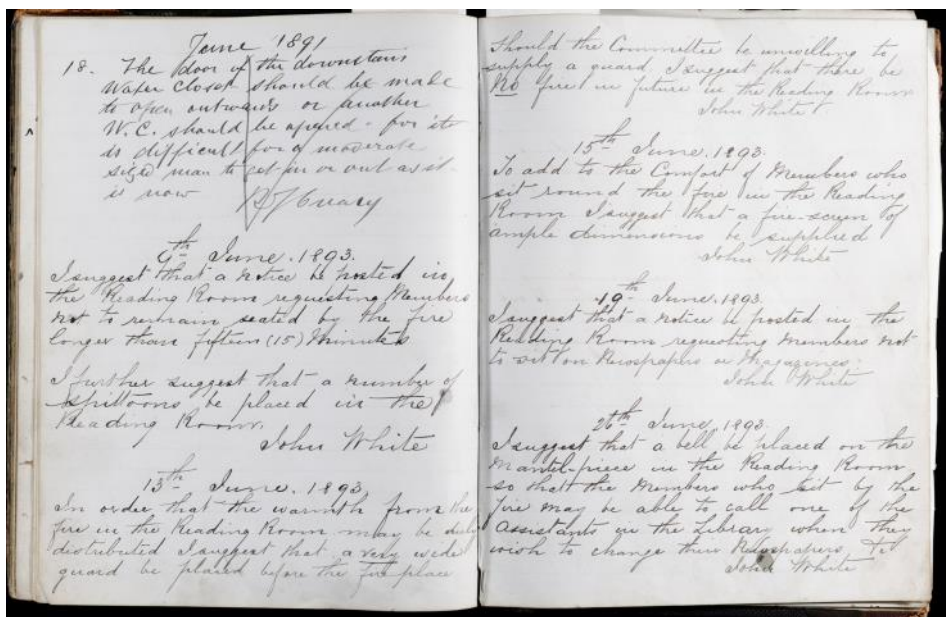 June 1891
18. The door of the downstairs
water closet should be made
to open outwards or another
W.C. should be opened - for it
is difficult for a moderate
sized man to get in or out as it
is now
9th June. 1893.
I suggest that a notice be posted in
the Reading Room requesting Members
not to remain seated by the fire
longer than fifteen (15) Minutes
I further suggest that a number of
spittoons be placed in the
Reading Room.
John White
13th June. 1893.
In order that the warmth from the
fire in the Reading Room may be duly
distributed I suggest that a very wide
guard be placed before the fire place
Should the Committee be unwilling to
supply a guard I suggest that there be
No fire in future in the Reading Room
John White
15th June. 1893.
To add to the Comfort of Members who
sit round the fire in the Reading
Room I suggest that a fire-screen of
ample dimensions be supplied
John White
19th June. 1893.
I suggest that a notice be posted in the
Reading Room requesting Members not
to sit on Newspapers or Magazines.
John White
26th June, 1893.
I suggest that a bell be placed on the
Mantel-piece in the Reading Room
so that the Members who sit by the
fire may be able to call one of the
Assistants in the Library when they
wish to change their Newspapers
John White